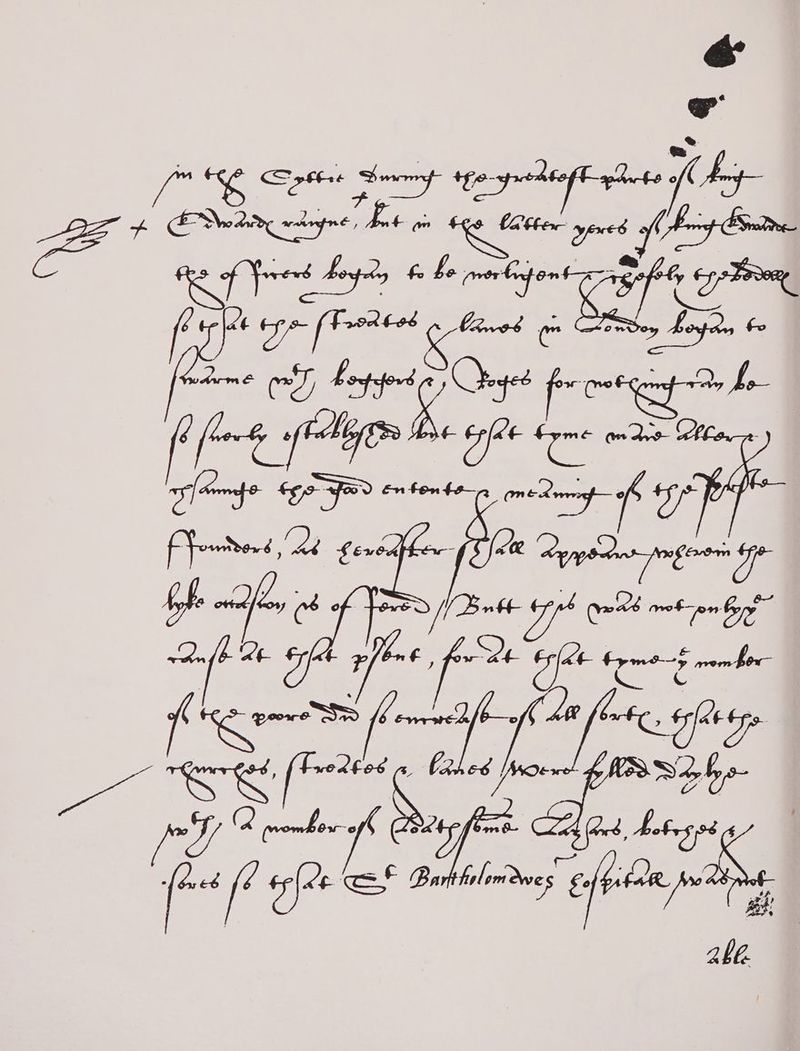 in the Cyttie during the greatest parte off king
+ Edwards raigne, but in the latter yeres off king Edwarde
the officers began to be necligent &
so that the streates & lanes in London began to
swarme wth beggers & Roges for nothing can be
so surely establyshed but that tyme maie alter &
chaunge the good entente & meaning off the
ffounders, as hereafter shall appeare wherein the
lyke occasion is offered // Butt this was not onlye yᵉ
cause at that pſent, for at that tyme yᵉ nomber
off the poore did so encrease off all sorts, that the
churches, streates & lanes were fylled daylye
wth a nomber off Loathsome Lazars, botches &
sores so that St Bartholomewes hospitall was not
able